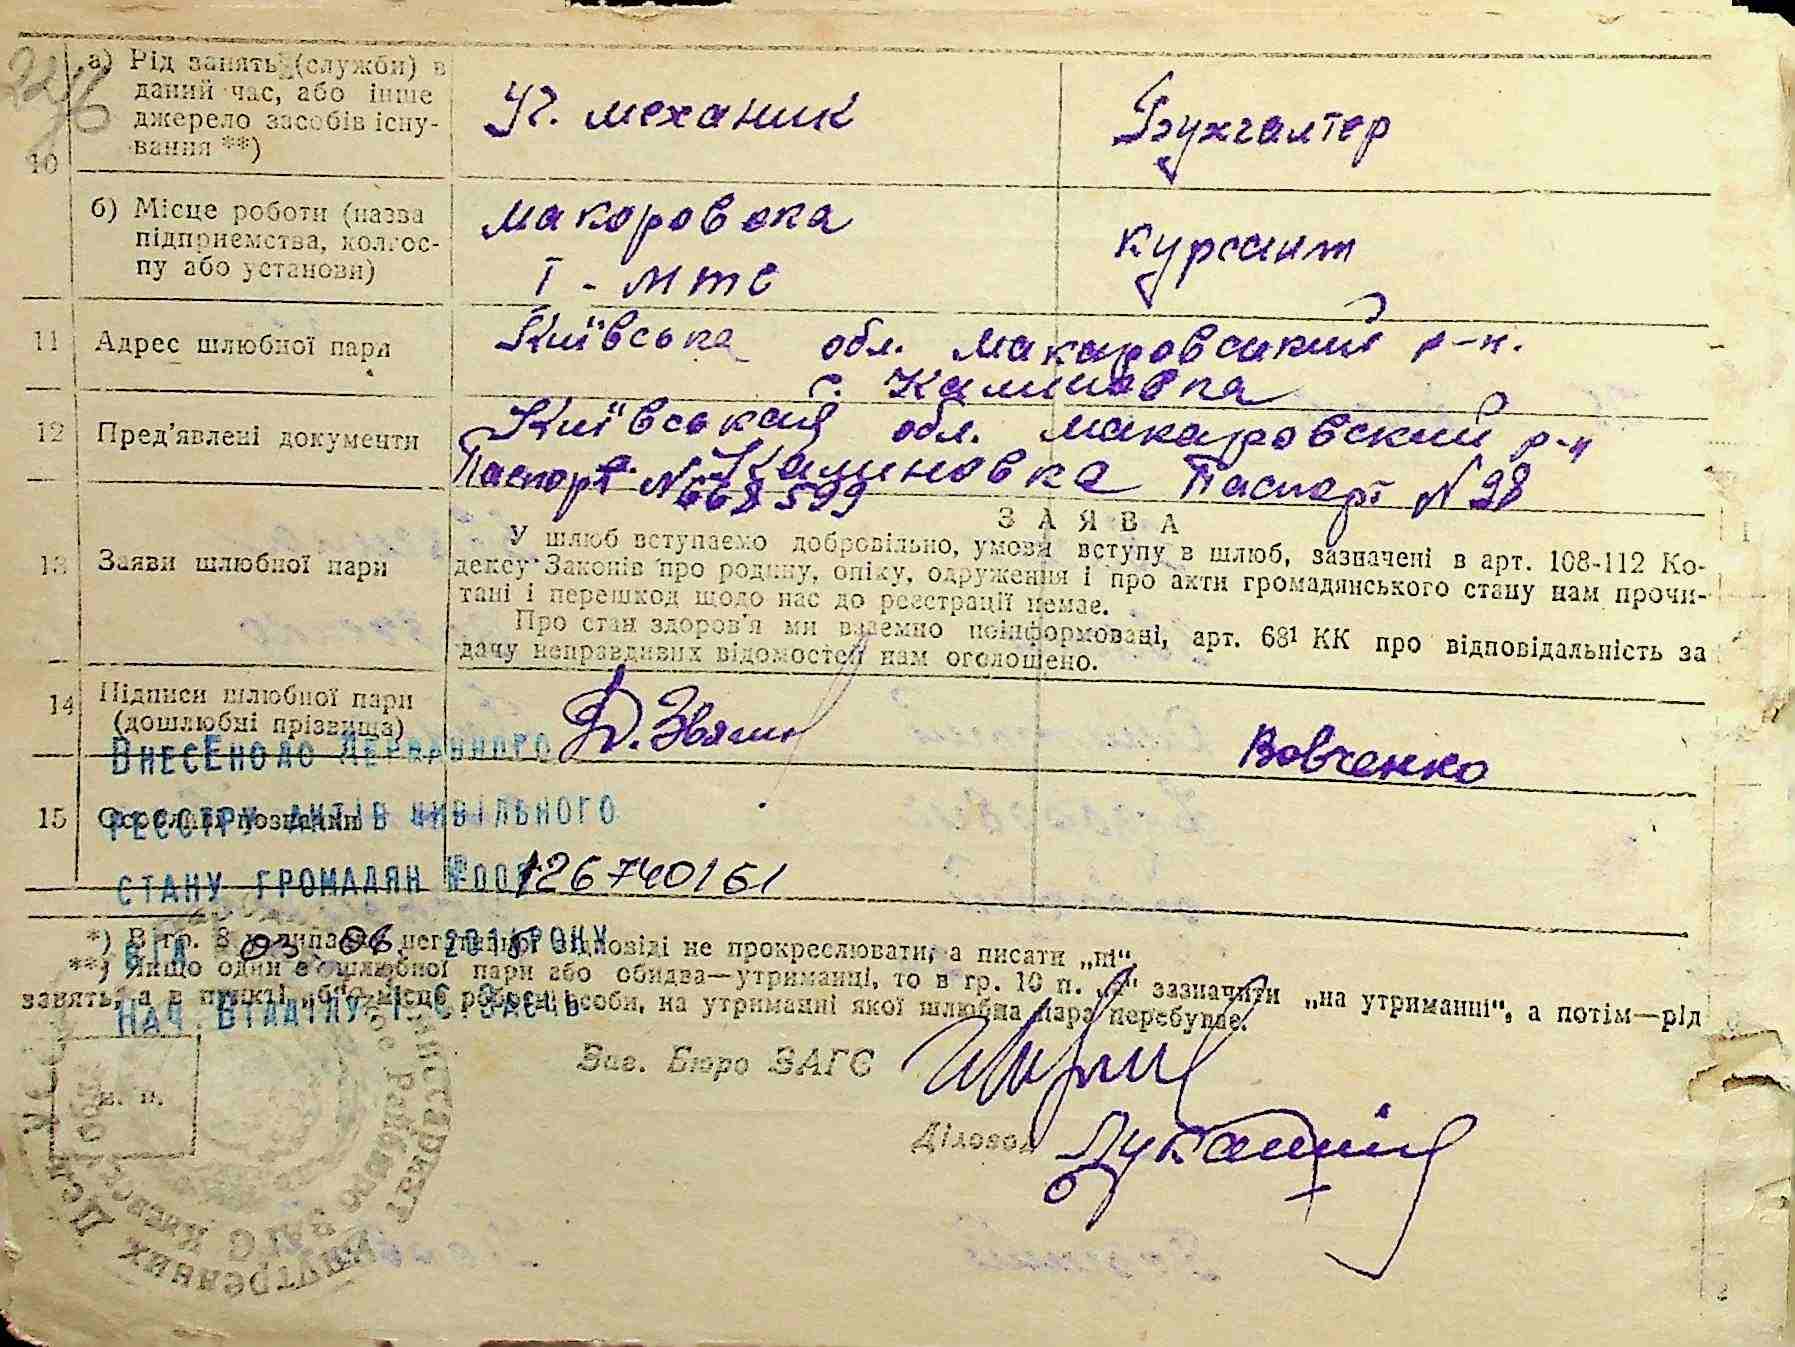 а) Рід занять (служби) в
даний час, або інше
джерело засобів існу-
вання **)
10
Уч. механик
Бухгалтер
б) Місце роботи (назва
підприємства, колгос-
пу або установи)
Макоровска
I - МТС
курсант
11 Адрес шлюбної пари
Київська обл. Макаровський р-н.
с. Калиновка
12 Пред'явлені документи
Київська обл. Макаровский р-н
Калиновка Паспорт N 28
Паспорт N 668599
13 Заяви шлюбної пари
ЗАЯВА
У шлюб вступаємо добровільно, умови вступу в шлюб, зазначені в арт. 108-112 Ко-
дексу Законів про родину, опіку, одруження і про акти громадянського стану нам прочи-
тані і перешкод щодо нас до реєстрації немає.
Про стан здоров'я ми взаємно поінформовані, арт. 68¹ КК про відповідальність за
дачу неправдивих відомостей нам оголошено.
14 Підписи шлюбної пари
(дошлюбні прізвища)
Вовченко
ВНЕСЕНО ДО ДЕРЖАВНОГО
15
РЕЄСТРУ АКТІВ ЦИВІЛЬНОГО
СТАНУ ГРОМАДЯН №00126740161
*) В гр. 8 у випадку негативної відповіді не прокреслювати, а писати „ні“.
ВІД 03 06 РОКУ
**) Якщо один з шлюбної пари або обидва—утриманці, то в гр. 10 п. „а“ зазначити „на утриманні“, а потім—рід
занять, а в пункті „б“ місце роботи особи, на утриманні якої шлюбна пара перебуває.
НАЧ. ВІДДІЛУ
Зав. Бюро ЗАГС
Діловод
м. п.